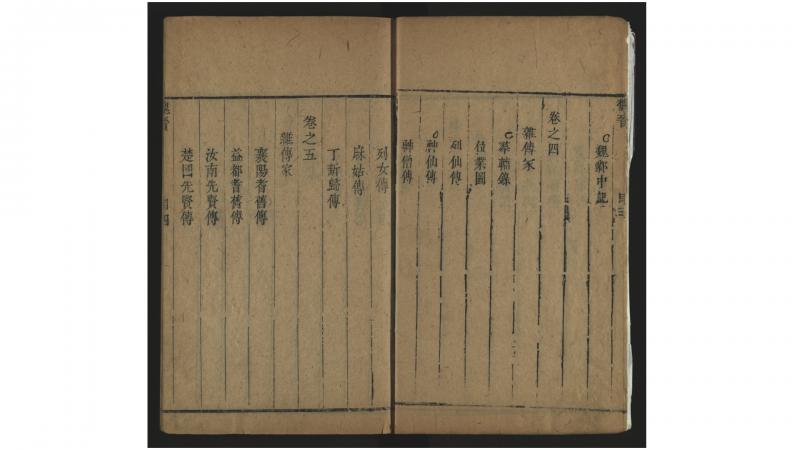 魏鄴中記
卷之四
雜傳家
羣輔錄
位業圖
列仙傳
神仙傳
神僧傳
列女傳
麻姑傳
丁新婦傳
卷之五
雜傳家
襄陽耆舊傳
益都耆舊傳
汝南先賢傳
楚國先賢傳